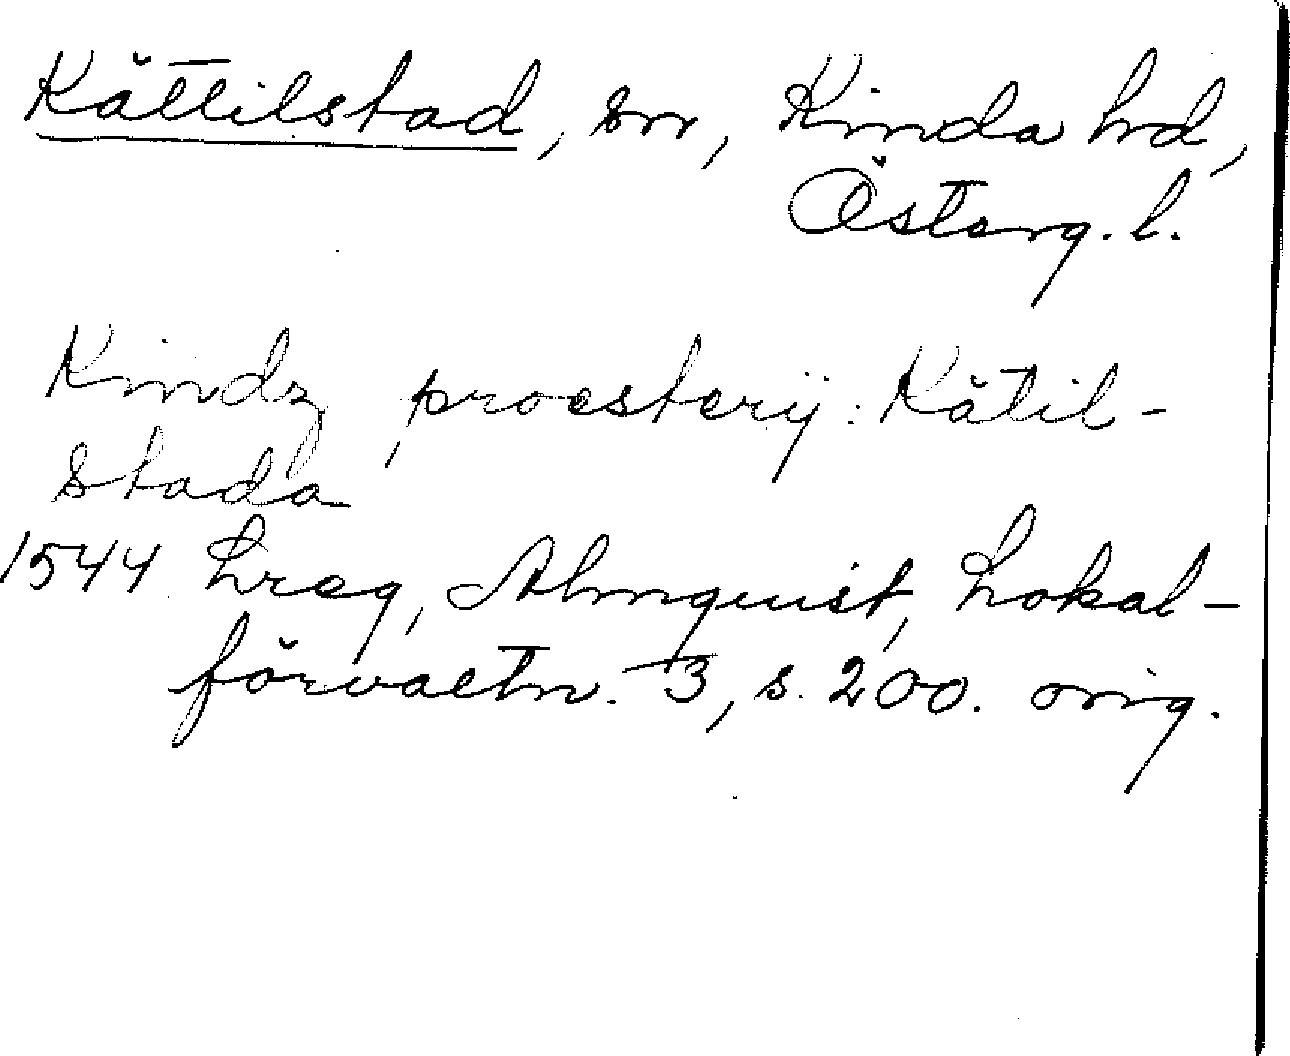 Kättilstad, sn, Kinda hd,
Österg. l.
Kindz proesterij: Kätil-
stada
1544 Lreg, Almquist, Lokal-
förvaltn. 3, s. 200. orig.